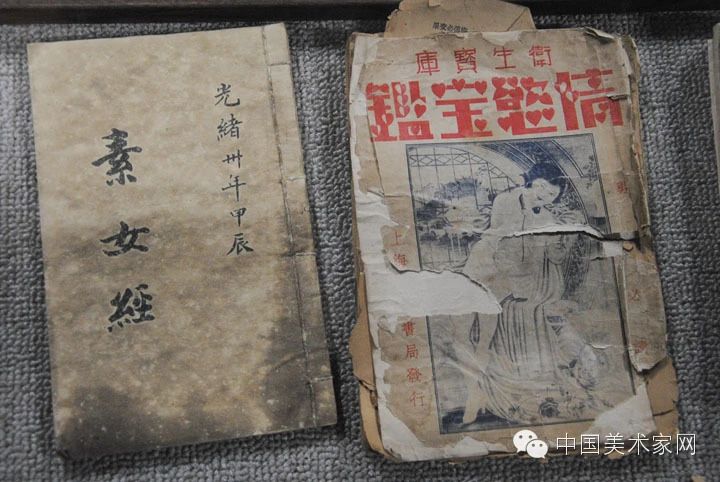 光緒卅年甲辰
素女經
衛生寶庫
情慾宝鑑
上海
書局發行
中国美术家网